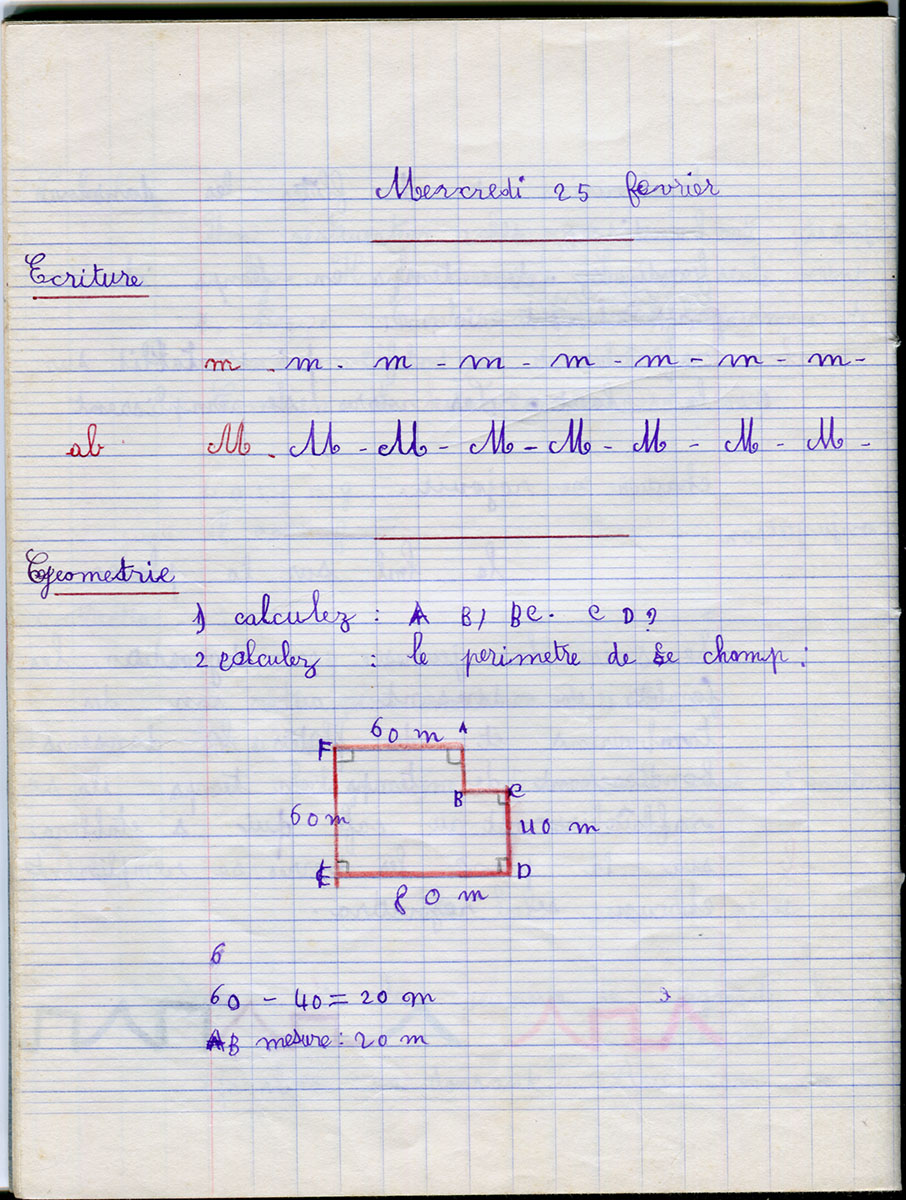 Mercredi 25 fevrier
Ecriture
m . m . m - m - m - m - m - m -
ab M . M - M - M - M - M - M - M -
Geometrie
1) calculez : A B, BC. C D ?
2 calculez : le perimetre de ce chomp :
60 m A
F
B C
60 m 40 m
E D
80 m
6
60 - 40 = 20 m
AB mesure : 20 m